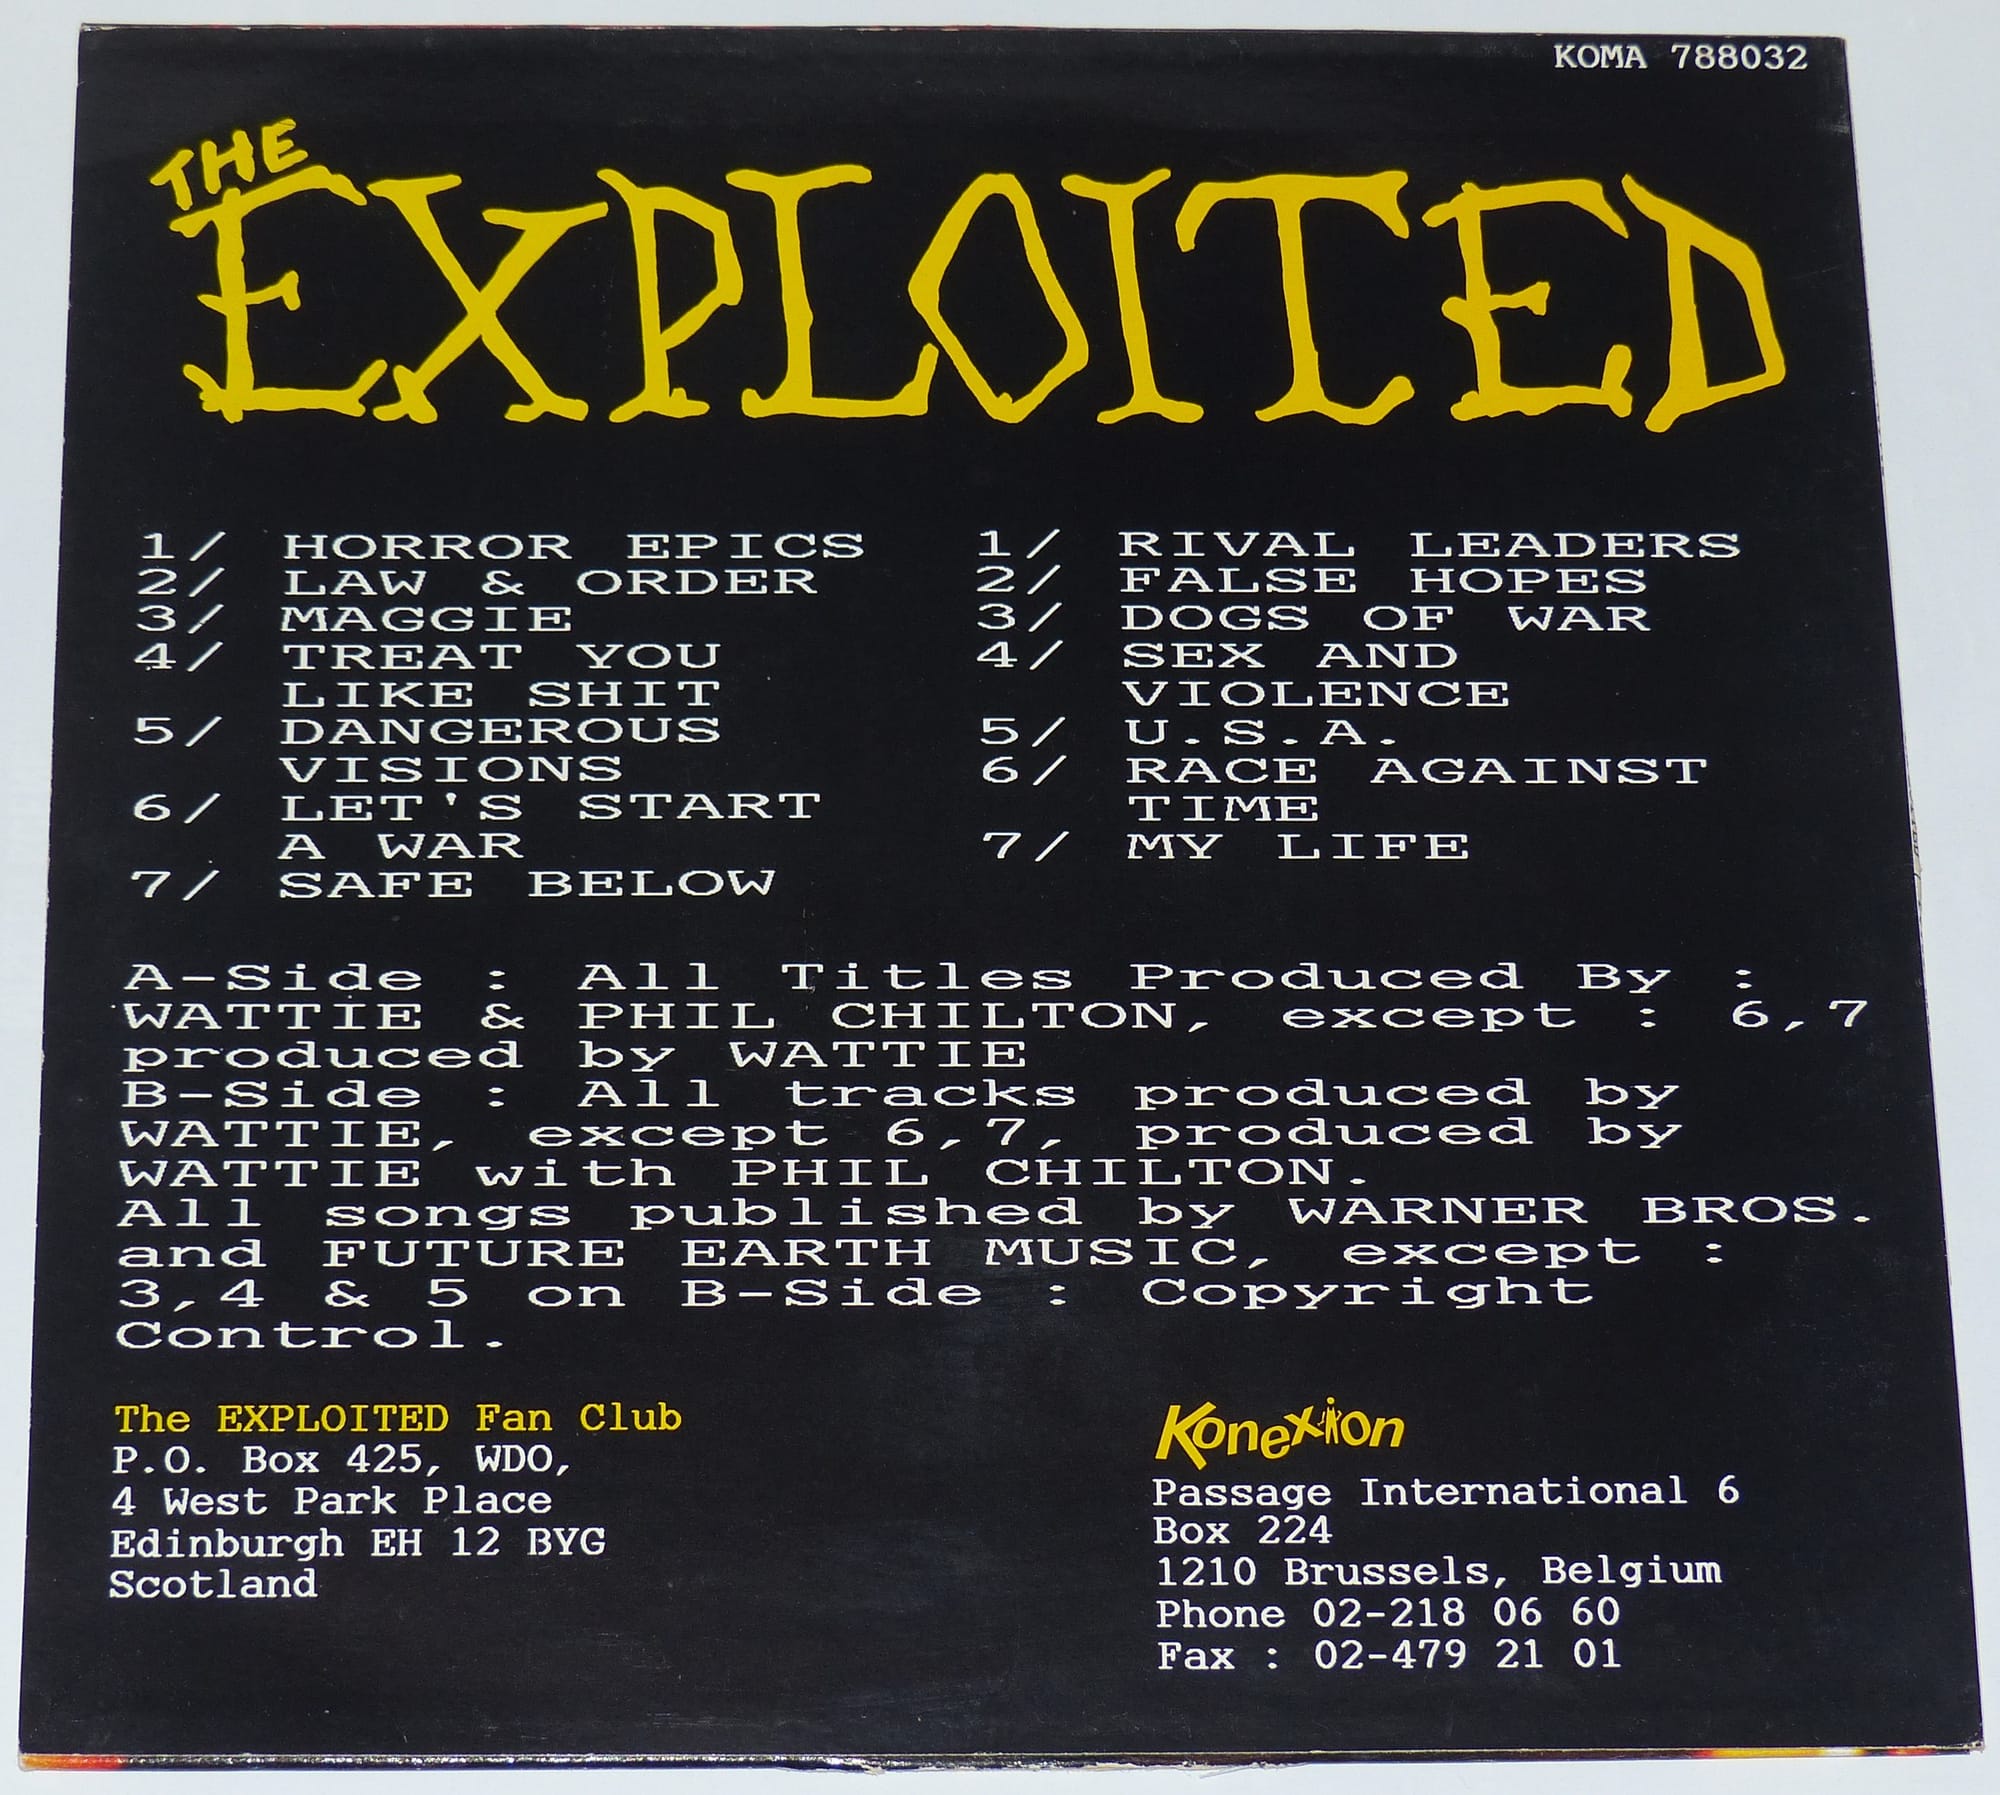 KOMA 788032
THE
EXPLOITED
1/ HORROR EPICS
2/ LAW & ORDER
3/ MAGGIE
4/ TREAT YOU
LIKE SHIT
5/ DANGEROUS
VISIONS
6/ LET'S START
A WAR
7/ SAFE BELOW
1/ RIVAL LEADERS
2/ FALSE HOPES
3/ DOGS OF WAR
4/ SEX AND
VIOLENCE
5/ U.S.A.
6/ RACE AGAINST
TIME
7/ MY LIFE
A-Side : All Titles Produced By :
WATTIE & PHIL CHILTON, except : 6,7
produced by WATTIE
B-Side : All tracks produced by
WATTIE, except 6,7, produced by
WATTIE with PHIL CHILTON.
All songs published by WARNER BROS.
and FUTURE EARTH MUSIC, except :
3,4 & 5 on B-Side : Copyright
Control.
The EXPLOITED Fan Club
P.O. Box 425, WDO,
4 West Park Place
Edinburgh EH 12 BYG
Scotland
Konexion
Passage International 6
Box 224
1210 Brussels, Belgium
Phone 02-218 06 60
Fax : 02-479 21 01